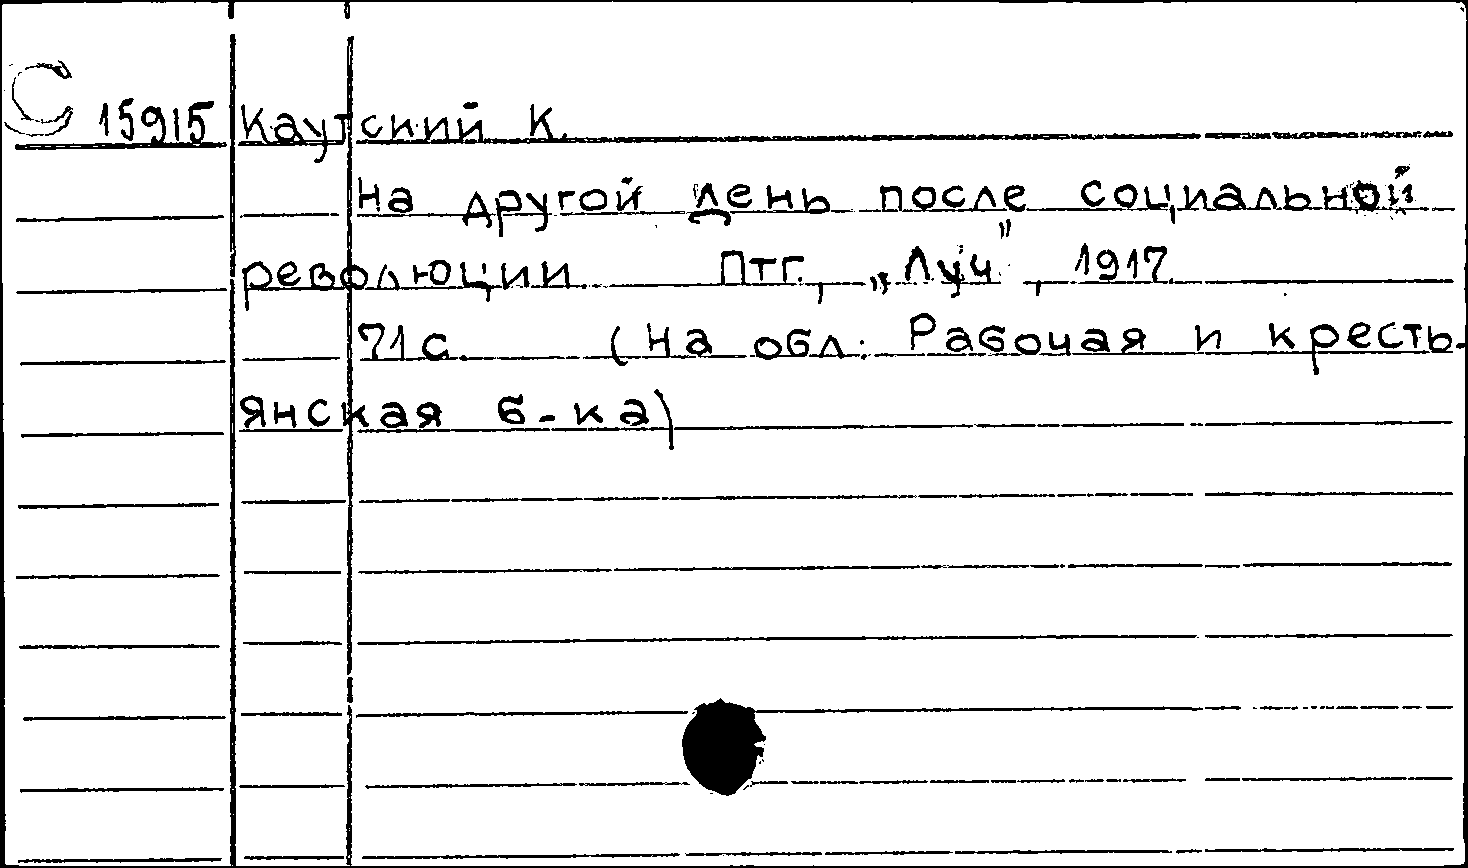 С 15915 Каутский К.
На другой день после социальной
революции. Птг., „Луч", 1917.
71 с. (На обл: Рабочая и кресть-
янская б-ка)